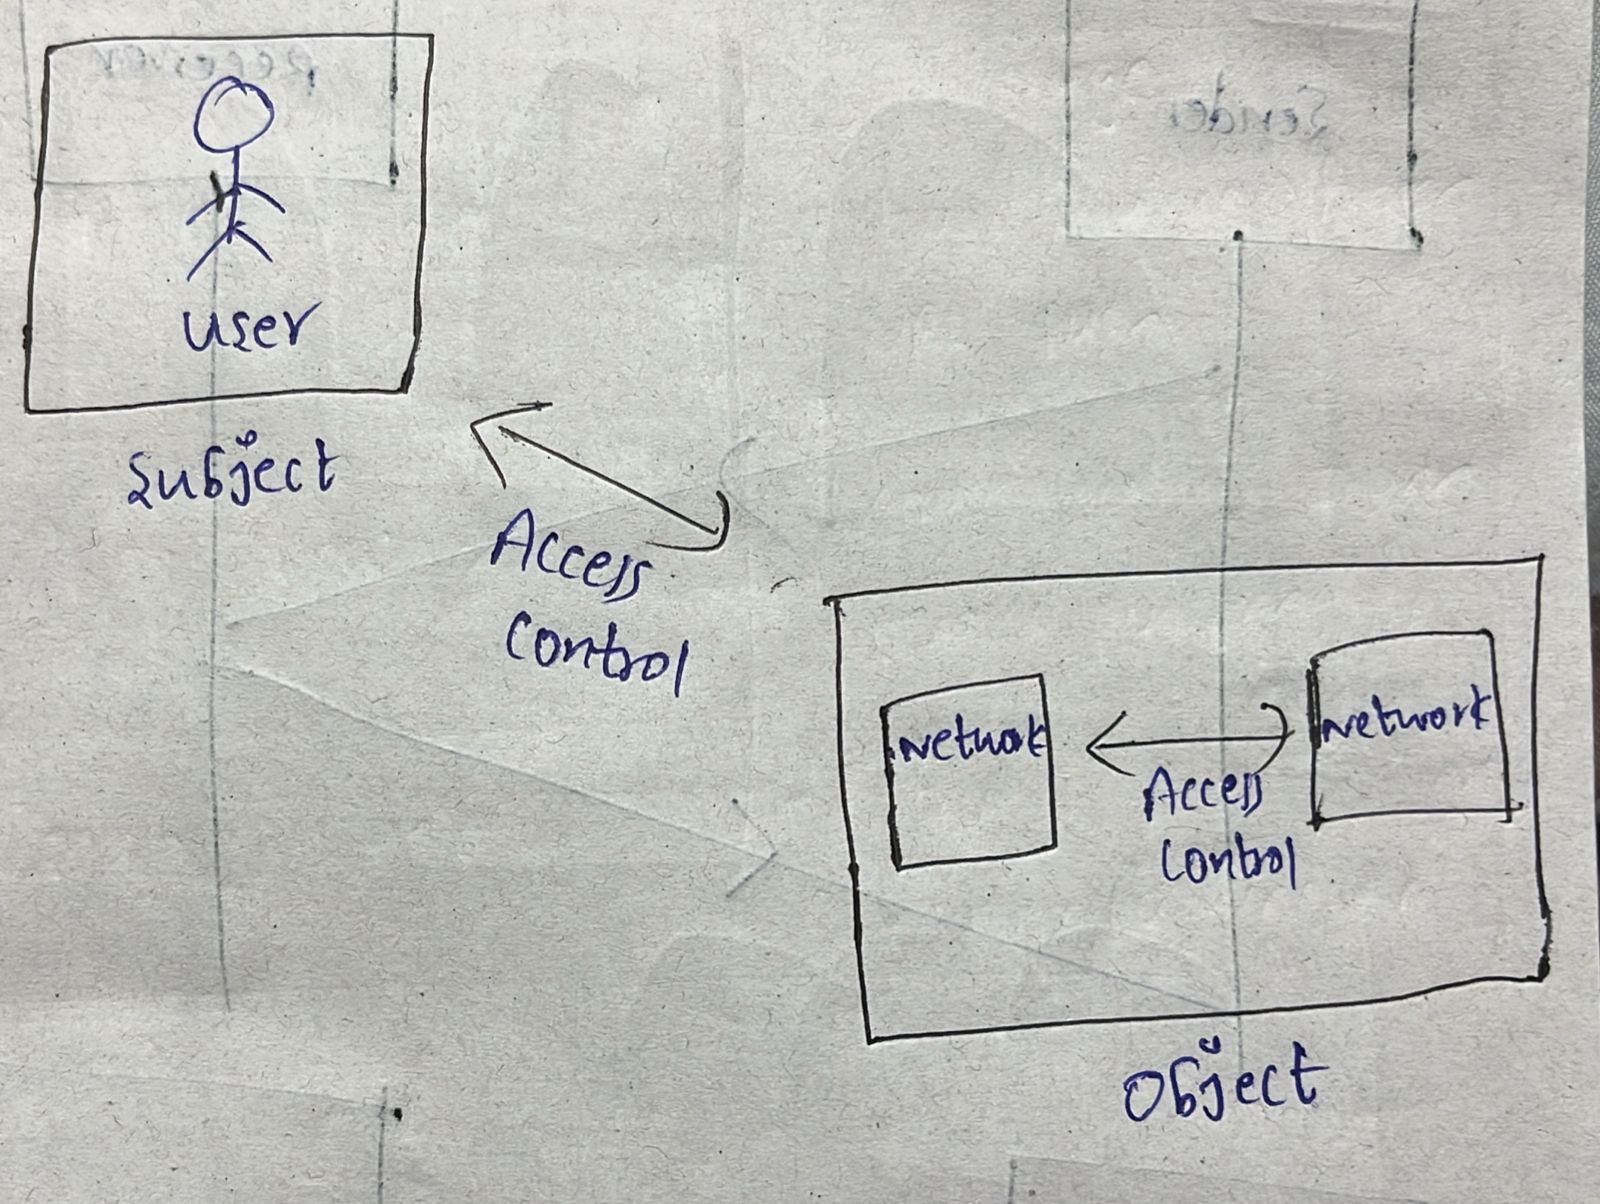 Receiver
Sender
user
Subject
Access
Control
Network
Network
Access
Control
Object